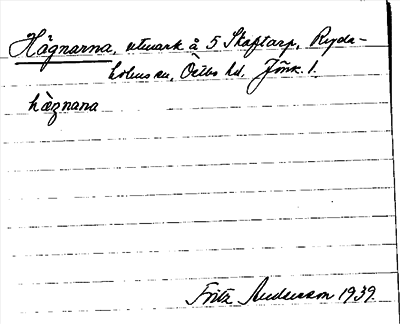 Hägnarna, utmark å 5 Skaftarp, Ryda-
holms sn, Östbo hd, Jönk. l.
hàgnana
Fritz Andersson 1939.